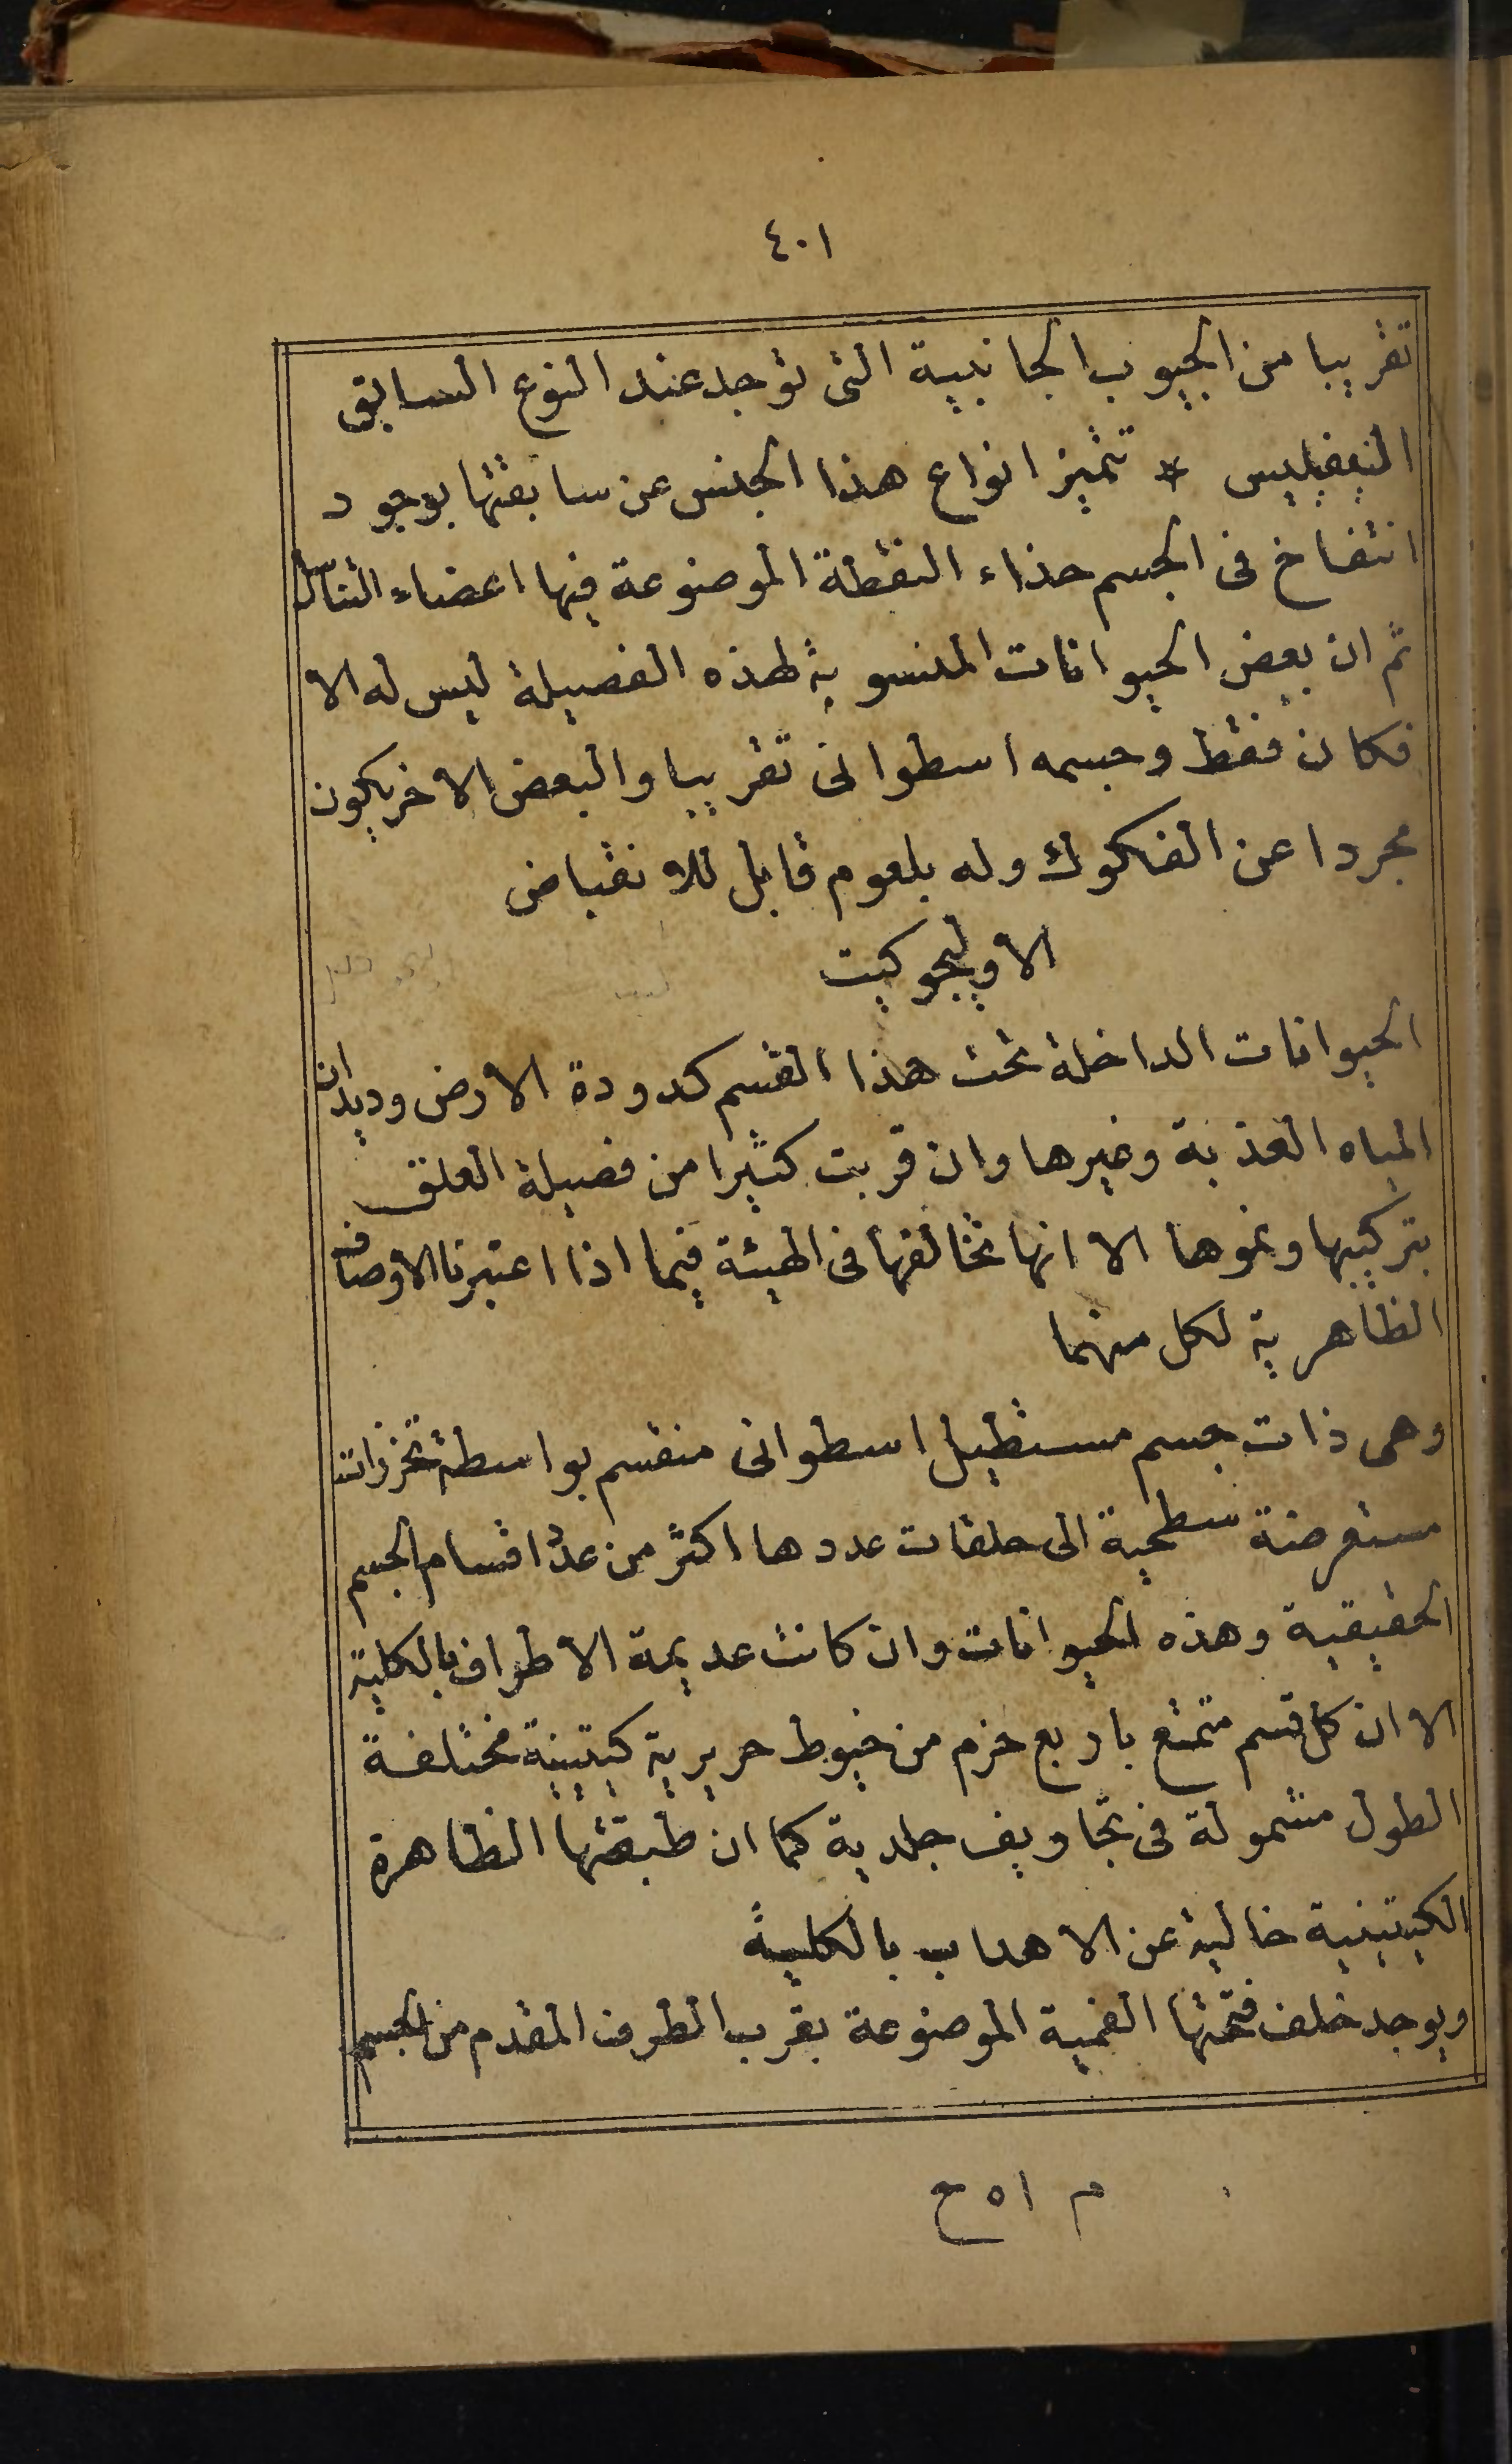 ٤٠١
تقريبا من الجيوب الجانبية التى توجد عند النوع السابق
النيفيليس * تتميز انواع هذا الجنس عن سابقتها بوجود
انتفاخ فى الجسم حذاء النقطة الموضوعة فيها اعضاء التناسل
ثم ان بعض الحيوانات المنسوبة لهذه الفصيلة ليس له الا
فكان فقط وجسمه اسطوانى تقريبا والبعض الاخر يكون
مجردا عن الفكوك وله بلعوم قابل للانقباض
الاوليجوكيت
الحيوانات الداخلة تحت هذا القسم كدودة الارض وديدان
المياه العذبة وغيرها وان قربت كثيرا من فصيلة العلق
بتركيبها ونموها الا انها تخالفها فى الهيئة فيما اذا اعتبرنا الاوصاف
الظاهرية لكل منهما
وهى ذات جسم مستطيل اسطوانى منقسم بواسطة تحززات
مستعرضة سطحية الى حلقات عددها اكثر من عدد اقسام الجسم
الحقيقية وهذه الحيوانات وان كانت عديمة الاطراف بالكلية
الا ان كل قسم متمتع باربع حزم من خيوط حريرية كيتينية مختلفة
الطول مشمولة فى تجاويف جلدية كما ان طبقتها الظاهرة
الكيتينية خالية عن الاهداب بالكلية
ويوجد خلف فتحتها الفمية الموضوعة بقرب الطرف المقدم من الجسم
م ٥١ ح